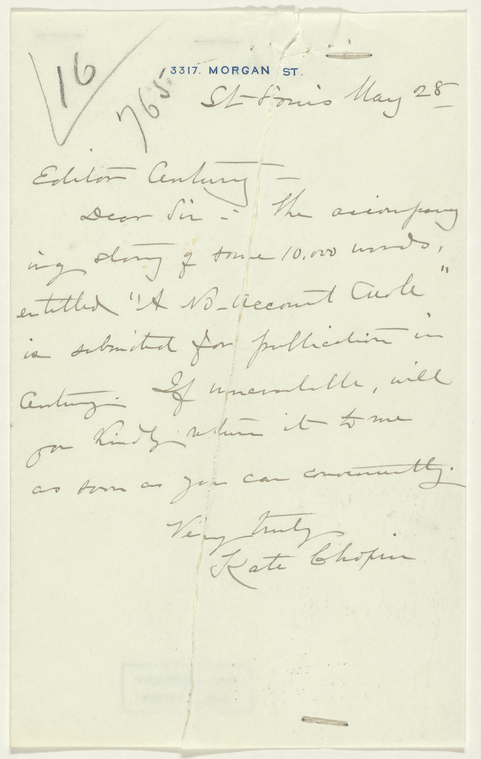 16
765
3317. MORGAN ST.
St Louis May 28
Editor Century —
Dear Sir — : The accompany
ing story of some 10.000 words,
entitled "A No-Account Creole"
is submitted for publication in
Century. If unavailable, will
you kindly return it to me
as soon as you can conveniently.
Very truly
Kate Chopin